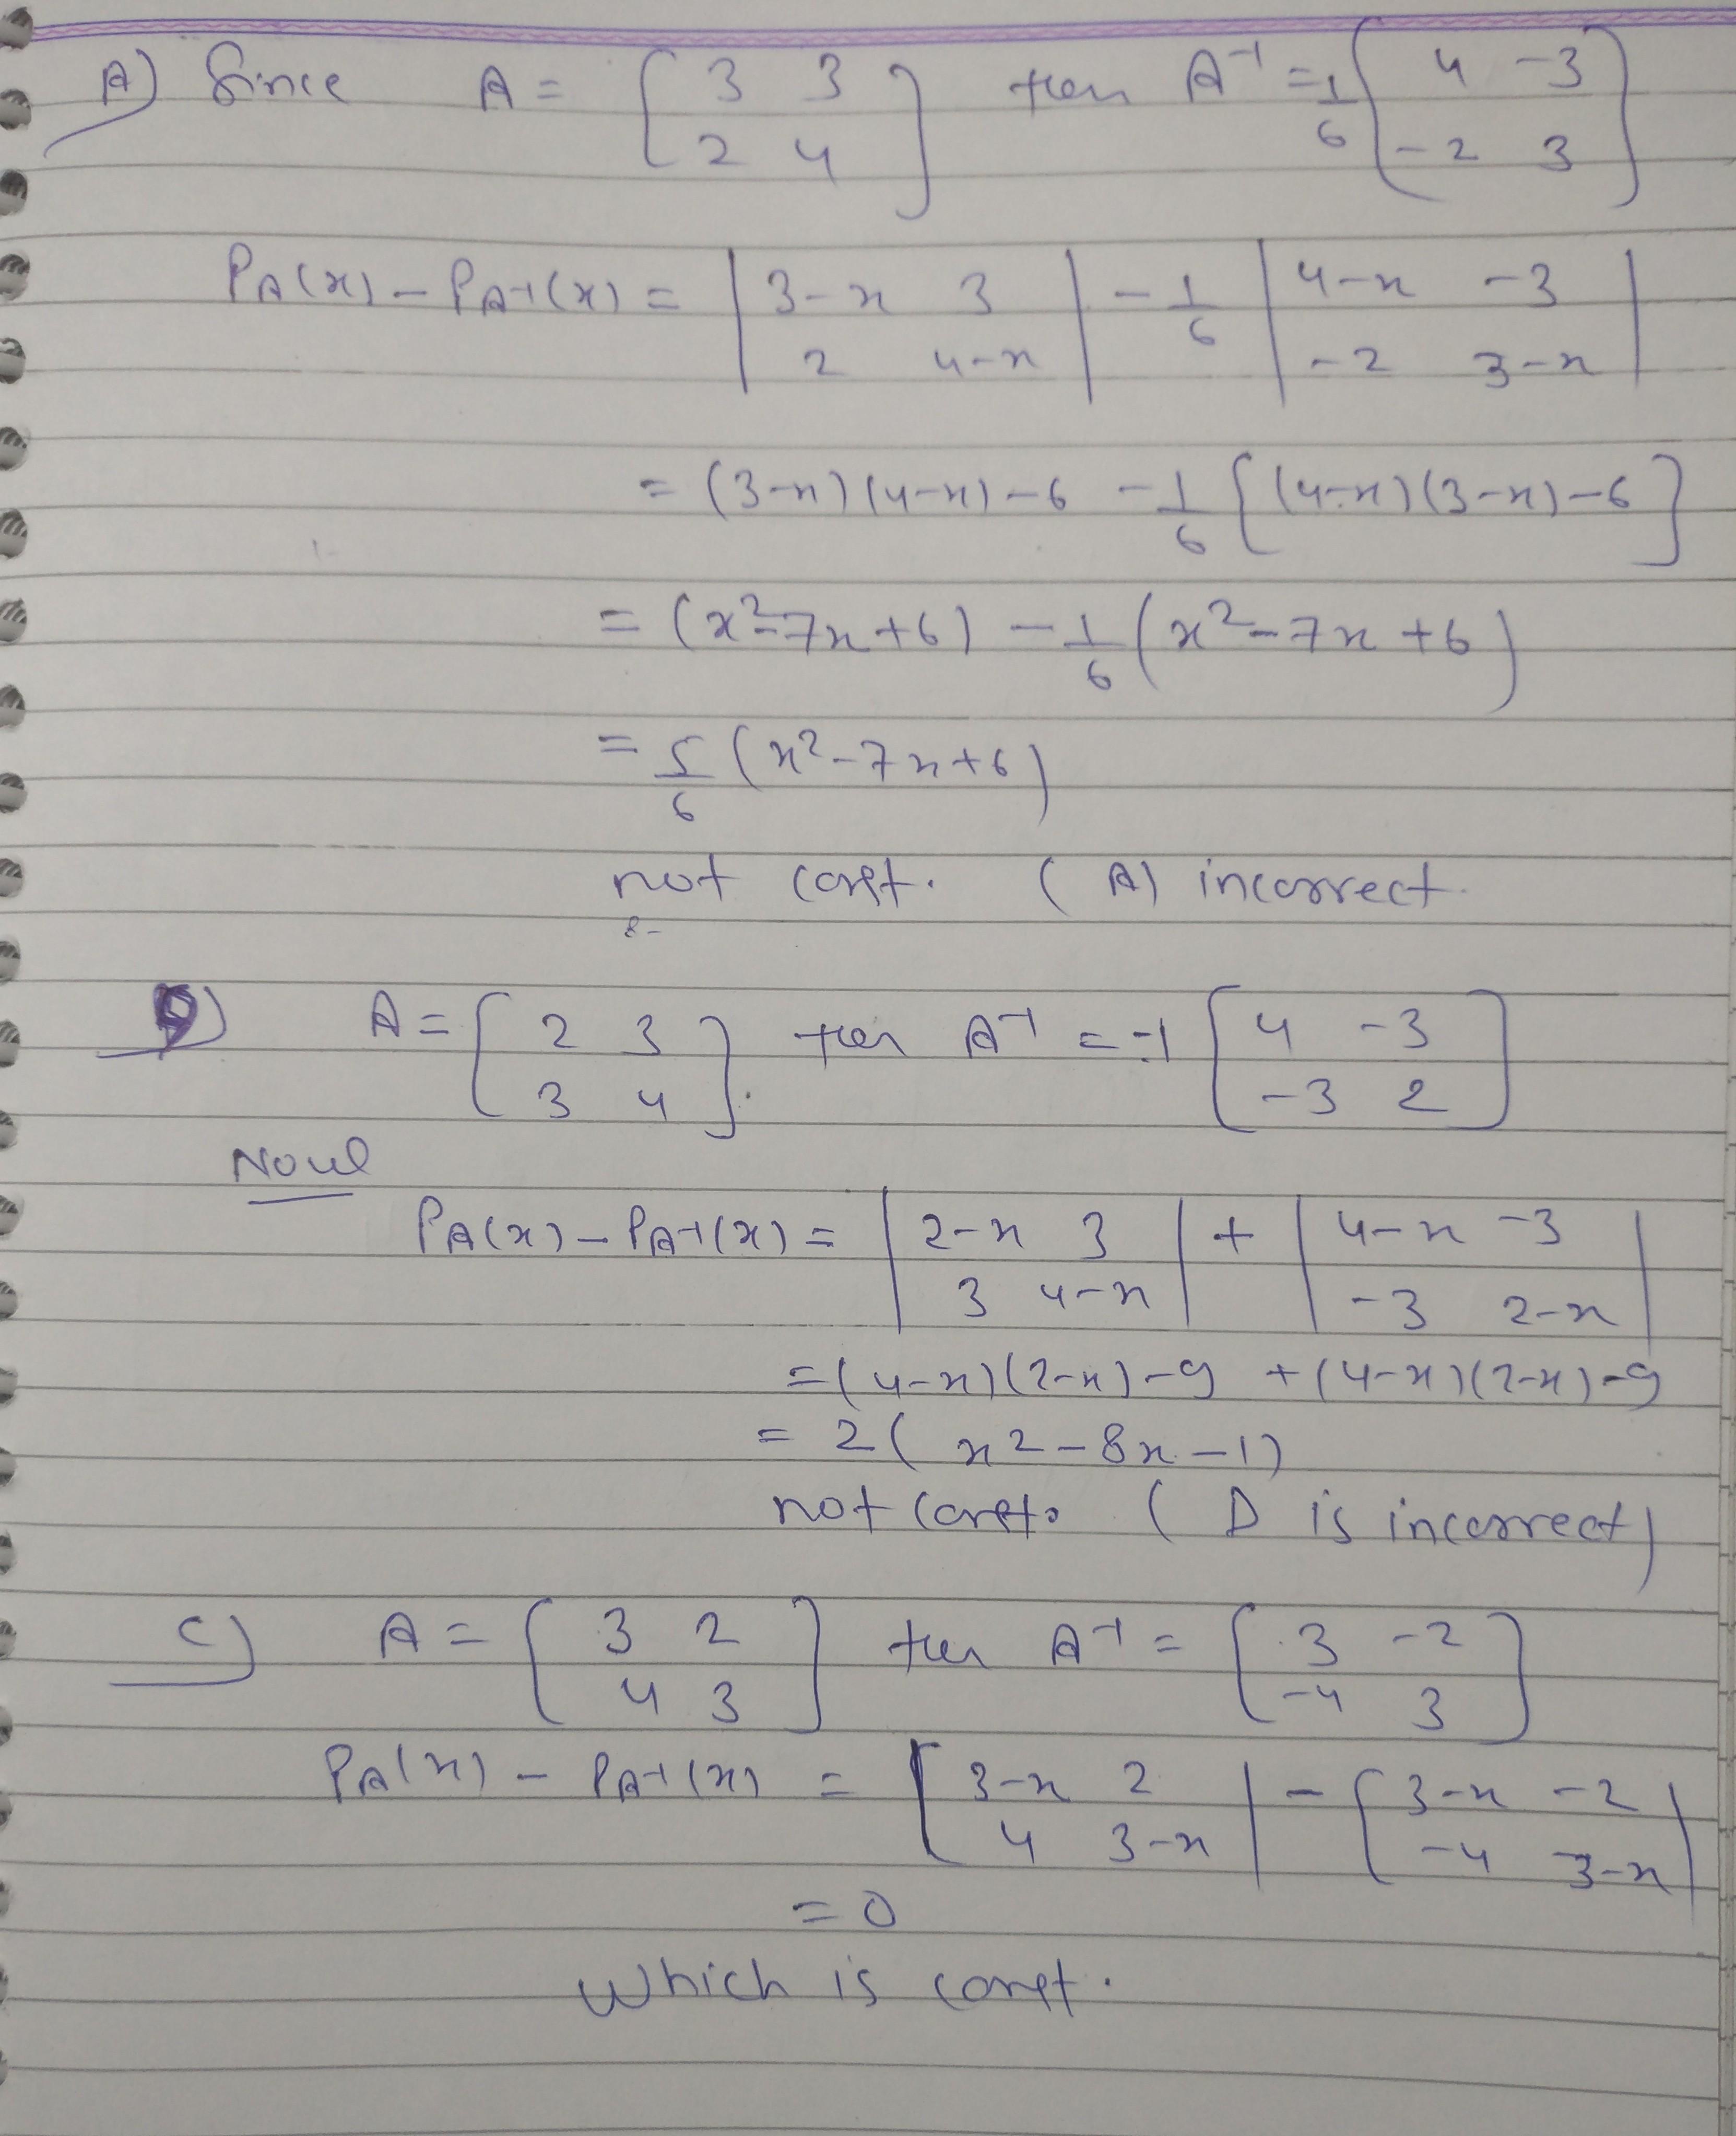 A) Since A = [3 3 2 4] then A⁻¹ = 1/6 (4 -3 -2 3)
P_A(x) - P_A⁻¹(x) = |3-x 3 2 4-x| - 1/6 |4-x -3 -2 3-x|
= (3-x)(4-x)-6 - 1/6 {(4-x)(3-x)-6}
= (x²-7x+6) - 1/6 (x²-7x+6)
= 5/6 (x²-7x+6)
not const. (A) incorrect.
D) A = [2 3 3 4]. then A⁻¹ = -1 [4 -3 -3 2]
Now
P_A(x) - P_A⁻¹(x) = |2-x 3 3 4-x| + |4-x -3 -3 2-x|
= (4-x)(2-x)-9 + (4-x)(2-x)-9
= 2(x2-8x-1)
not const. (D is incorrect)
C) A = [3 2 4 3] then A⁻¹ = [3 -2 -4 3]
P_A(x) - P_A⁻¹(x) = [3-x 2 4 3-x| - [3-x -2 -4 3-x|
= 0
which is const.